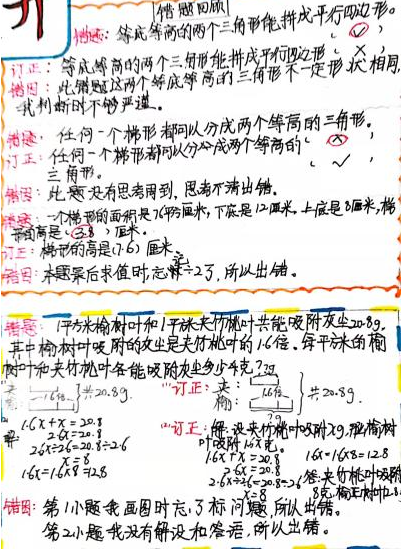 错题回顾
错题：等底等高的两个三角形能拼成平行四边形。
（√）
订正：等底等高的两个三角形能拼成平行四边形（×）
错因：此错题这两个等底等高的三角形不一定形状相同，
我判断时不够严谨。
错题：任何一个梯形都可以分成两个等高的三角形。
（×）
订正：任何一个梯形都可以分成两个等高的
三角形。（√）
错因：此题没有思考周到，思考不清出错。
错题：一个梯形的面积是76平方厘米，下底是12厘米，上底是8厘米，梯
形的高是（3.8）厘米。
订正：梯形的高是（7.6）厘米。
错因：本题最后求值时，忘÷2了，所以出错。
错题：1平方米榆树叶和1平方米夹竹桃叶共能吸附灰尘20.8g.
其中榆树叶吸附的灰尘是夹竹桃叶的1.6倍。每平方米的榆
树叶和夹竹桃叶各能吸附灰尘多少克？
1.6倍 共20.8g
(1)订正：夹：
榆：1.6倍 共20.8g.
?g
解：
1.6x+x=20.8
2.6x=20.8
2.6x÷2.6=20.8÷2.6
x=8
1.6x=1.6×8=12.8
(2)订正：解：设夹竹桃叶吸附xg,则榆树
叶吸附1.6x克。
1.6x+x=20.8
2.6x=20.8
2.6x÷2.6=20.8÷2.6
x=8
1.6x=1.6×8=12.8
答：夹竹桃叶吸附
8克，榆树叶12.8
错因：第1小题我画图时忘了标问题，所以出错。
第2小题我没有解设和答语，所以出错。